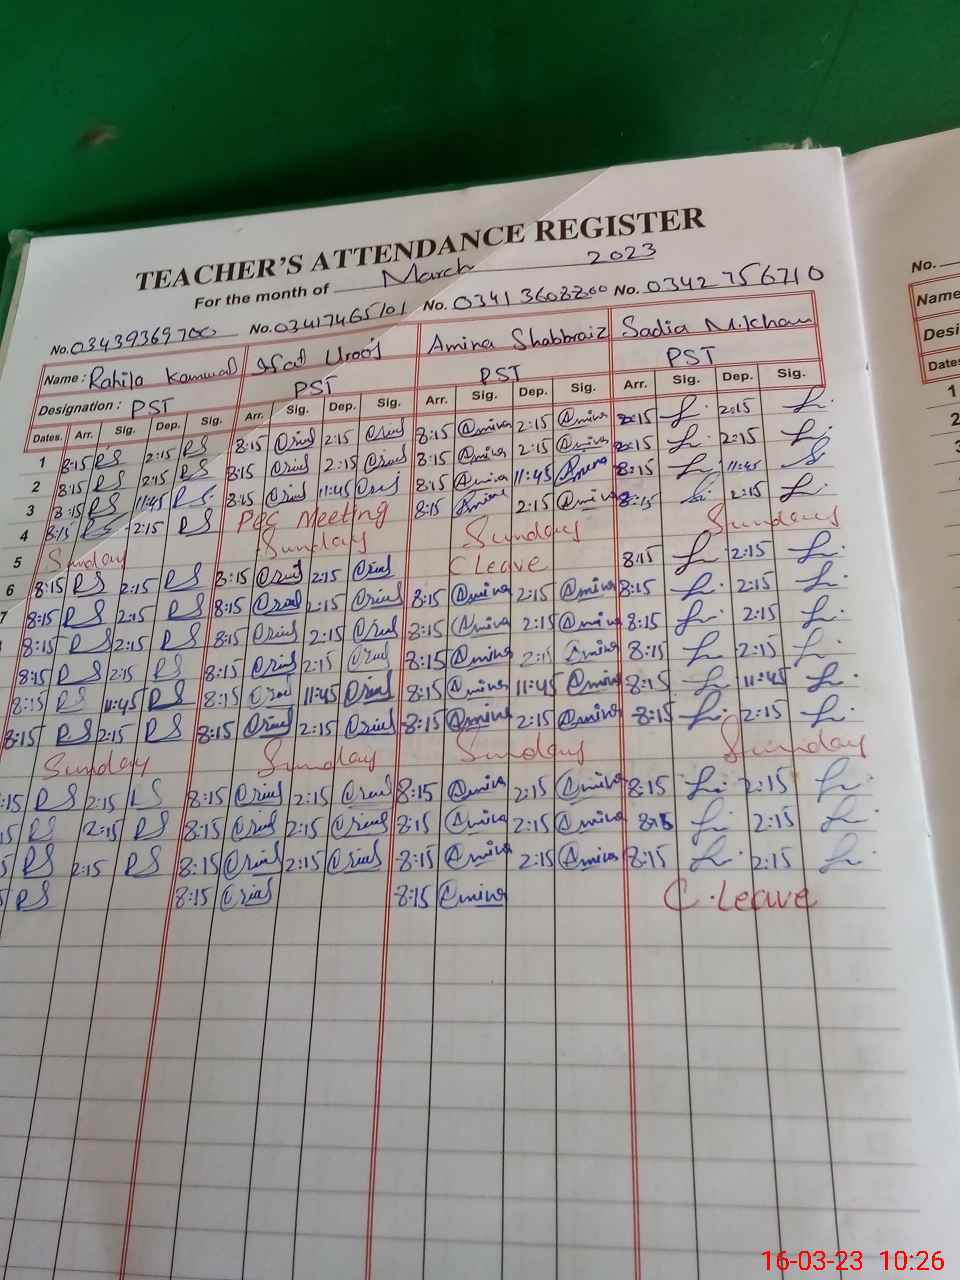 TEACHER'S ATTENDANCE REGISTER
For the month of March 2023
No. 03439369700 No. 03417465101 No. 03413608200 No. 0342 756710 No.
Name : Rahila Kanwal Ifat Uroos Amina Shabbraiz Sadia M.Khan Name
Designation : PST PST PST PST Desi
Dates. Arr. Sig. Dep. Sig. Arr. Sig. Dep. Sig. Arr. Sig. Dep. Sig. Arr. Sig. Dep. Sig. Dates
1 8:15 RS 2:15 RS 8:15 2:15 8:15 Amina 2:15 Amina 8:15 2:15 1
2 8:15 RS 2:15 RS 8:15 2:15 8:15 Amina 2:15 Amina 8:15 2:15 2
3 8:15 RS 11:45 RS 8:15 11:45 8:15 Amina 11:45 Amina 8:15 11:45 3
4 8:15 RS 2:15 RS Pec Meeting 8:15 Amina 2:15 Amina 8:15 2:15 4
5 Sunday Sunday Sunday Sunday 5
6 8:15 RS 2:15 RS 8:15 2:15 C Leave 8:15 2:15
7 8:15 RS 2:15 RS 8:15 2:15 8:15 Amina 2:15 Amina 8:15 2:15
8:15 RS 2:15 RS 8:15 2:15 8:15 Amina 2:15 Amina 8:15 2:15
8:15 RS 2:15 RS 8:15 2:15 8:15 Amina 2:15 Amina 8:15 2:15
8:15 RS 11:45 RS 8:15 11:45 8:15 Amina 11:45 Amina 8:15 11:45
8:15 RS 2:15 RS 8:15 2:15 8:15 Amina 2:15 Amina 8:15 2:15
Sunday Sunday Sunday Sunday
:15 RS 2:15 RS 8:15 2:15 8:15 Amina 2:15 Amina 8:15 2:15
15 RS 2:15 RS 8:15 2:15 8:15 Amina 2:15 Amina 8:15 2:15
5 RS 2:15 RS 8:15 2:15 8:15 Amina 2:15 Amina 8:15 2:15
5 RS 8:15 8:15 Amina C.Leave
16-03-23 10:26